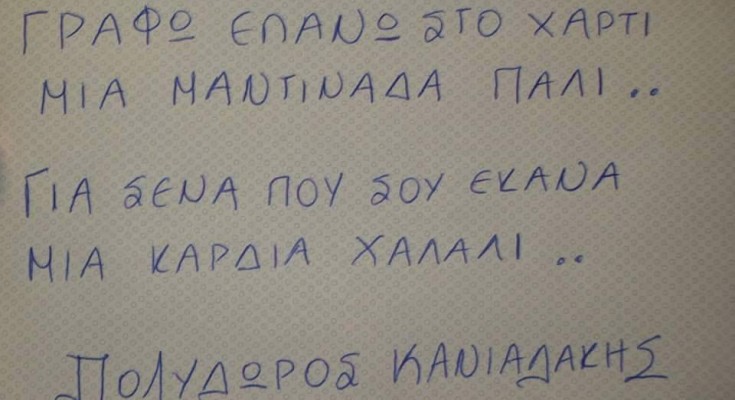 ΓΡΑΦΩ ΕΠΑΝΩ ΣΤΟ ΧΑΡΤΙ
ΜΙΑ ΜΑΝΤΙΝΑΔΑ ΠΑΛΙ ..
ΓΙΑ ΣΕΝΑ ΠΟΥ ΣΟΥ ΕΚΑΝΑ
ΜΙΑ ΚΑΡΔΙΑ ΧΑΛΑΛΙ ..
ΠΟΛΥΔΩΡΟΣ ΚΑΝΙΑΔΑΚΗΣ